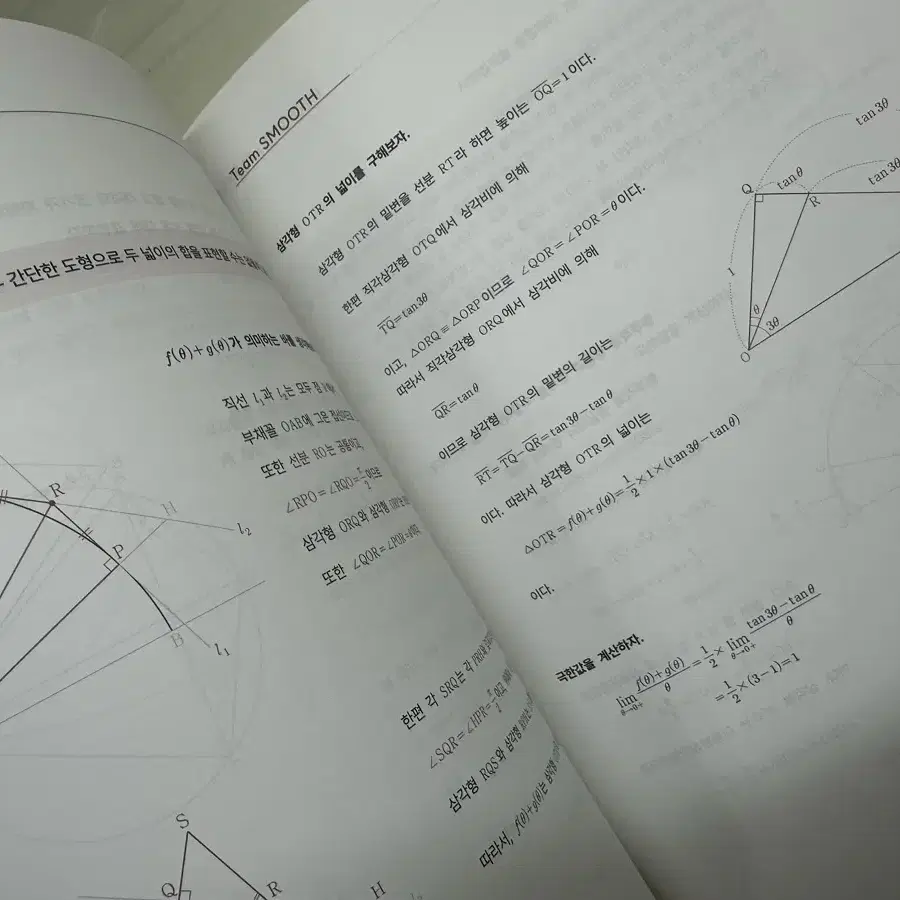 간단한 도형으로 두 넓이의 합을 표현할 수
f(θ)+g(θ)가 의미하는 바를
직선 l₁과 l₂는 모두 점
부채꼴 OAB에 그은
또한 선분 RO는 공통이고,
∠RPO=∠RQO=π/2이므로
삼각형 ORQ와 삼각형
또한 ∠QOR=∠POR=θ
한편 각 SRQ는 각
∠SQR=∠HPR=π/2이고,
삼각형 RQS와 삼각형
따라서, f(θ)+g(θ)는 삼각형
R
H
l₂
P
B
l₁
S
Q
R
H
Team SMOOTH
삼각형 OTR의 넓이를 구해보자.
삼각형 OTR의 밑변을 선분 RT라 하면 높이는 OQ=1이다.
한편 직각삼각형 OTQ에서 삼각비에 의해
TQ=tan3θ
이고, △ORQ≡△ORP이므로 ∠QOR=∠POR=θ이다.
따라서 직각삼각형 ORQ에서 삼각비에 의해
QR=tanθ
이므로 삼각형 OTR의 밑변의 길이는
RT=TQ-QR=tan3θ-tanθ
이다. 따라서 삼각형 OTR의 넓이는
△OTR=f(θ)+g(θ)=1/2×1×(tan3θ-tanθ)
이다.
극한값을 계산하자.
lim θ→0+ f(θ)+g(θ)/θ=1/2×lim θ→0+ tan3θ-tanθ/θ
=1/2×(3-1)=1
tan3θ
Q
tanθ
R
tan3θ
1
θ
3θ
O